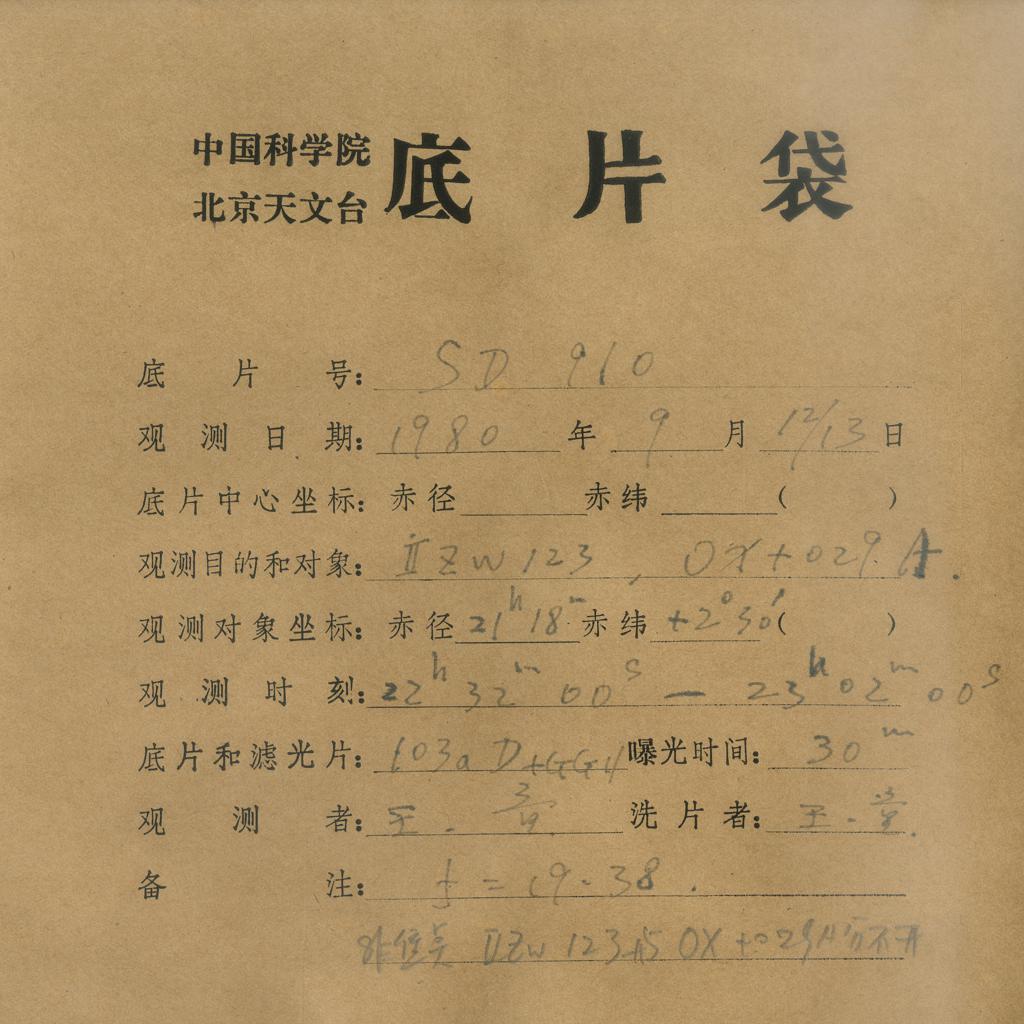 中国科学院
北京天文台
底片袋
底片号: SD 910
观测日期: 1980 年 9 月 12/13 日
底片中心坐标: 赤径 赤纬 ( )
观测目的和对象: II ZW 123, OX+029.A.
观测对象坐标: 赤径 21h 18m 赤纬 +2°30′ ( )
观测时刻: 22h 32m 00s — 23h 02m 00s
底片和滤光片: 103a D+GG11 曝光时间: 30m
观测者: 王. 洗片者: 王.
备注: f = 19.38.
IIZW 123与 OX+029A 分不开